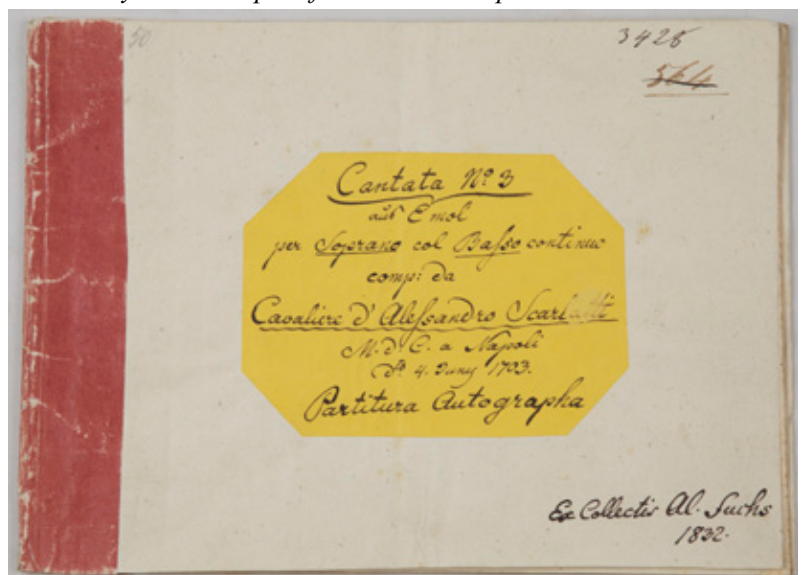 50
3428
564
Cantata Nº 3
aus Emol
per Soprano col Basso continuo
comp: da
Cavaliere d'Alessandro Scarlatti
M. d. C. a Napoli
dº 4. Juny 1703.
Partitura Autographa
Ex Collectis Al. Fuchs
1832.